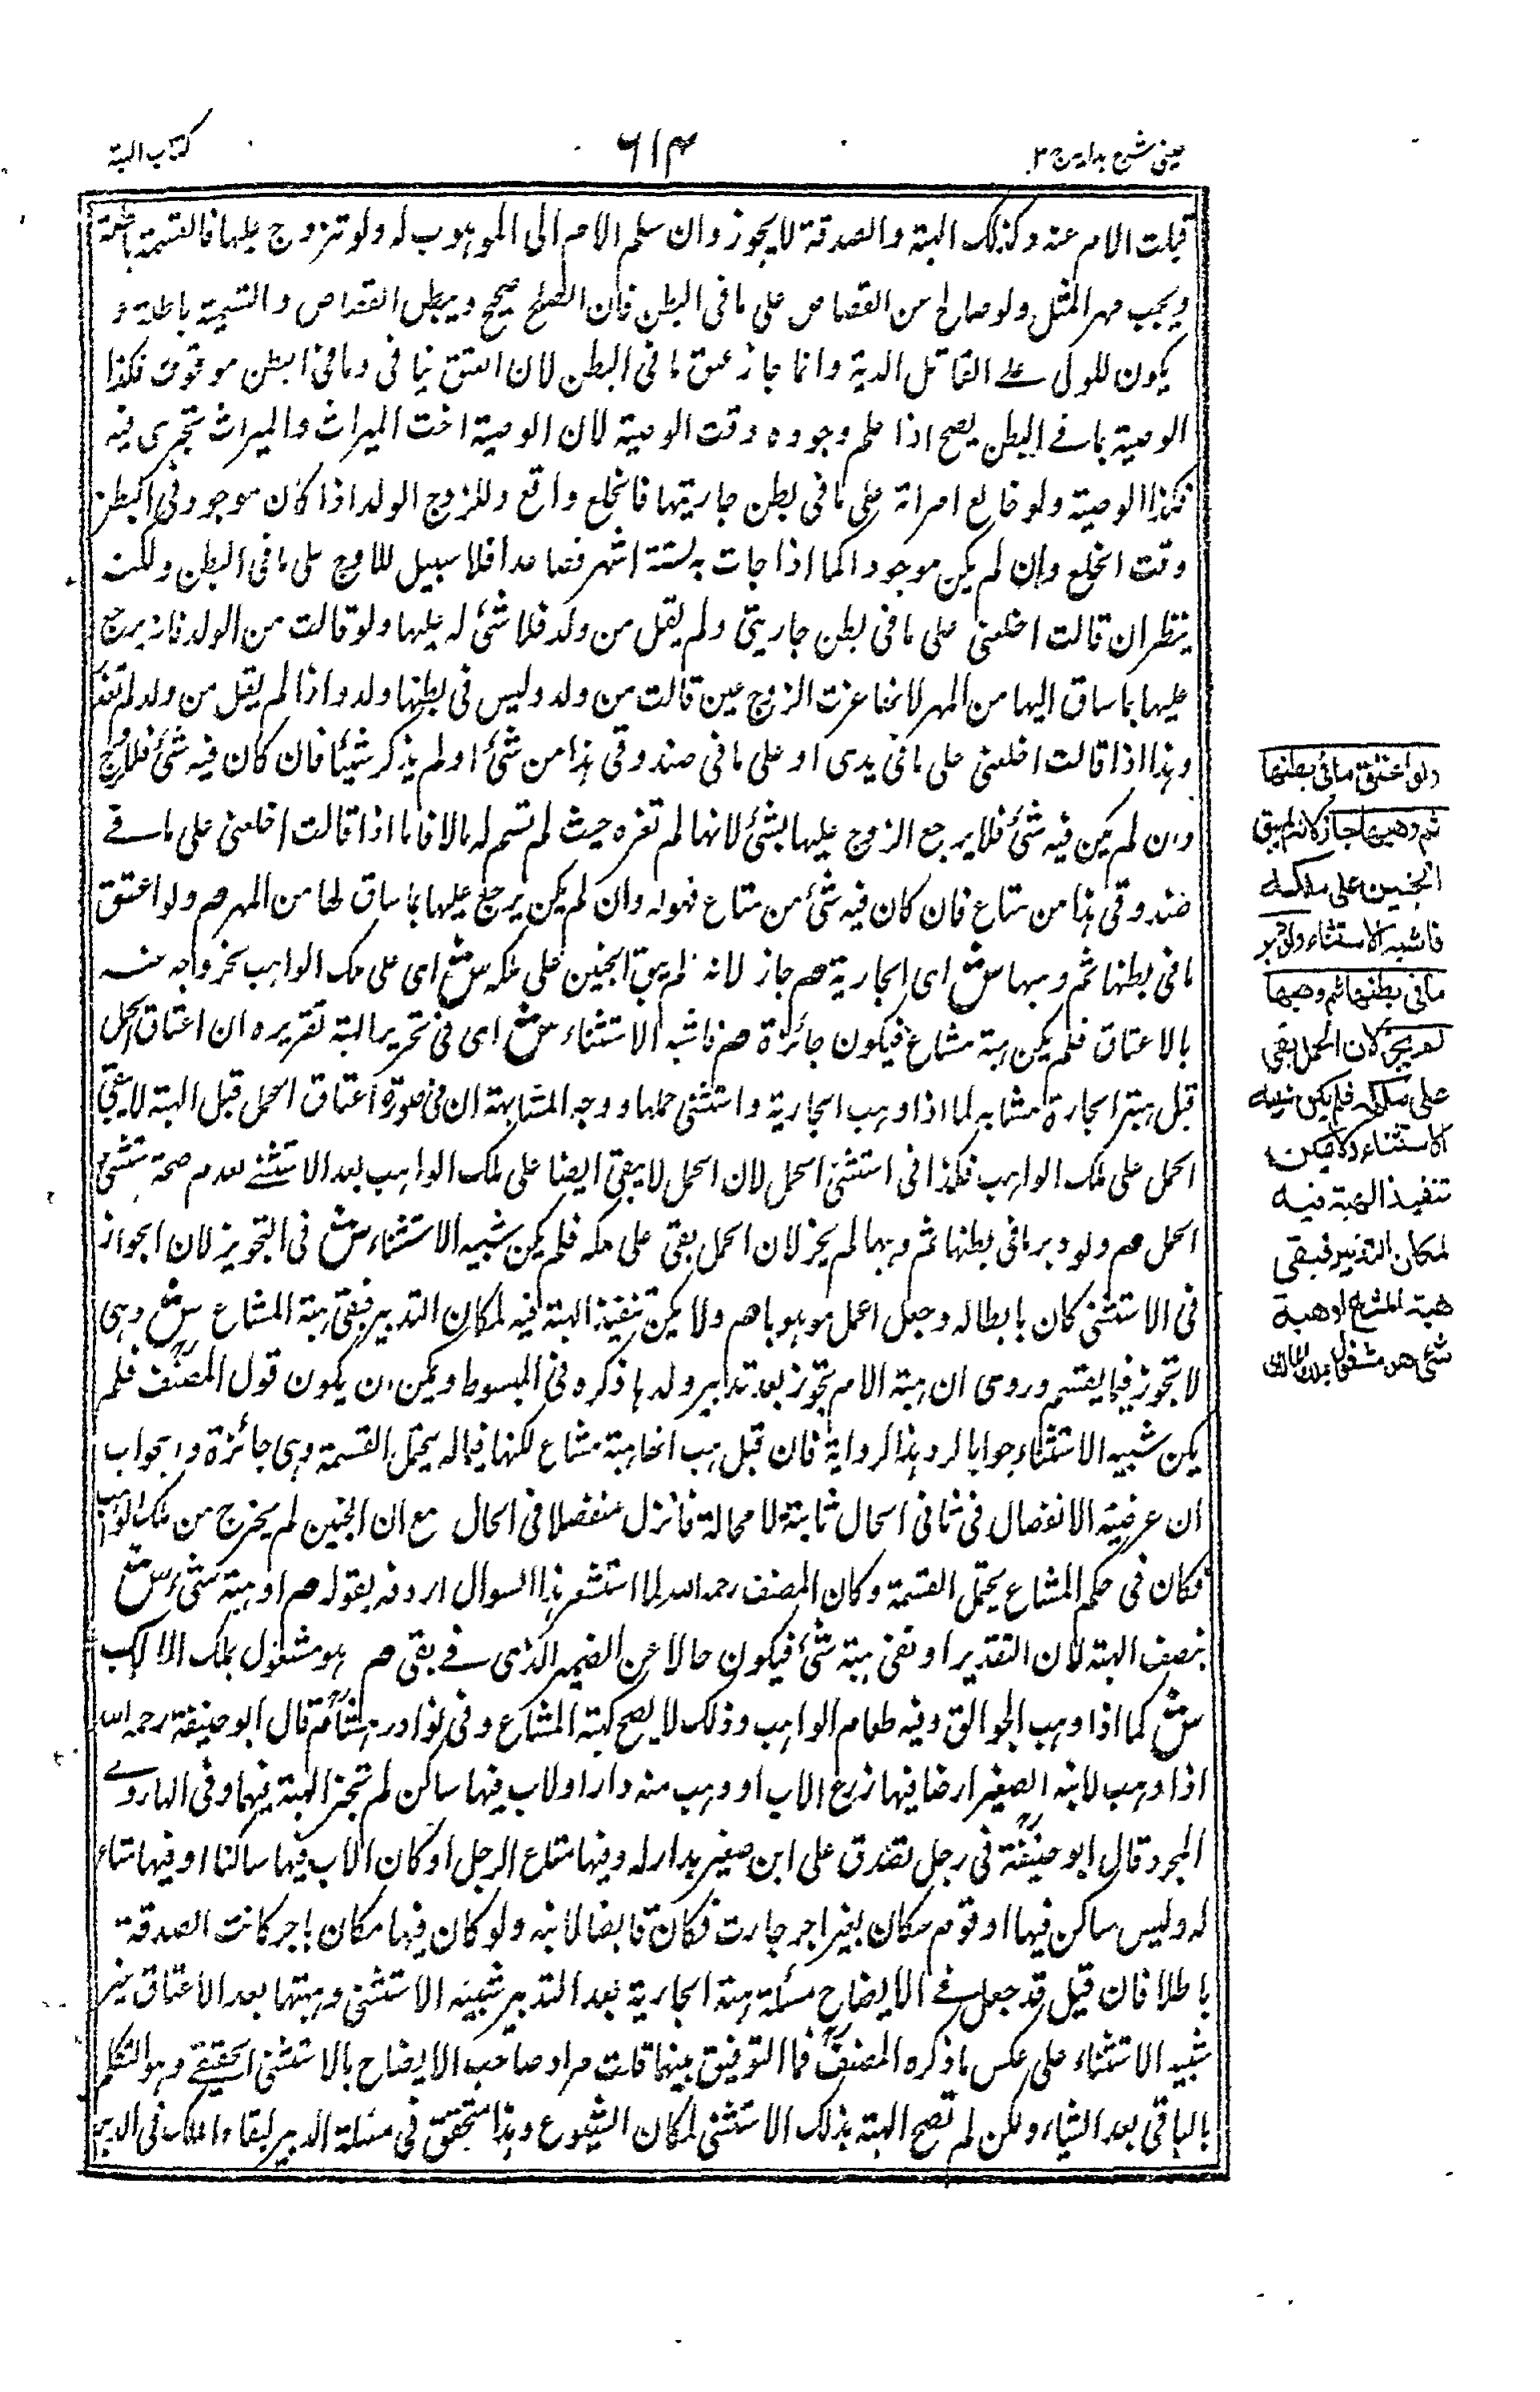 عینی شرح ہدایہ ج ٣
٦١٤
کتاب الہبة
قبلت الام عنه وكذلك الهبة والصدقة لا يجوز وان سلم الام الى الموهوب له ولو تزوج عليها فالقسمة باطلة
ويجب مهر المثل ولو صالح من القصاص على ما فى البطن فان الصلح صحيح ويبطل القصاص والتسمية باطلة و
يكون للولى على القاتل الدية وانما جاز عتق ما فى البطن لان العتق وما فى البطن موقوف فكذا
الوصية بما فى البطن يصح اذا علم وجوده وقت الوصية لان الوصية اخت الميراث والميراث تجرى فيه
فكذا الوصية ولو خالع امراة على ما فى بطن جاريتها فالخلع واقع وللزوج الولد اذا كان موجود فى البطن
وقت الخلع وان لم يكن موجودا كما اذا جات به لستة اشهر فصاعدا فلا سبيل للزوج على ما فى البطن ولكن
ينظر ان قالت اخلعنى على ما فى بطن جاريتى ولم يقل من ولد فلا شئ له عليها ولو قالت من الولد فانه يرجع
عليها بما ساق اليها من المهر لانها غرت الزوج حين قالت من ولد وليس فى بطنها ولد واذا لم يقل من ولد لم تغر
وهذا اذا قالت اخلعنى على ما فى يدى او على ما فى صندوقى هذا من شئ او لم يذكر شيئا فان كان فيه شئ فللزوج
وان لم يكن فيه شئ فلا يرجع الزوج عليها بشئ لانها لم تغره حيث لم تسم له مالا فاما اذا قالت اخلعنى على ما فى
صندوقى هذا من متاع فان كان فيه شئ من متاع فهو له وان لم يكن يرجع عليها بما ساق لها من المهر م ولو اعتق
ما فى بطنها ثم وهبها ش اى الجارية م جاز لانه لم يبق الجنين على ملكه ش اى على ملك الواهب بخروجه عنه
بالاعتاق فلم يكن هبة مشاع فيكون جائزة م فاشبه الاستثناء ش اى فى تحرير الهبة تقريره ان اعتاق الحمل
قبل هبة الجارة مشابه لما اذا وهب الجارية واستثنى حملها ووجه المشابهة ان فى صورة اعتاق الحمل قبل الهبة لا يبقى
الحمل على ملك الواهب فكذا فى استثنى الحمل لان الحمل لا يبقى ايضا على ملك الواهب بعد الاستثنى لعدم صحة استثنى
الحمل م ولو دبر ما فى بطنها ثم وهبها لم يجز لان الحمل بقى على ملكه فلم يكن شبيه الاستثناء ش فى التجويز لان الجواز
فى الاستثنى كان بابطاله وجعل الحمل موهوبا م ولا يمكن تنفيذ الهبة فيه لمكان التدبير فبقى هبة المشاع ش وهى
لا تجوز فيما يقسم وروى ان هبة الام تجوز بعد تدبير ولدها ذكره فى المبسوط ويمكن ان يكون قول المصنف فلم
يكن شبيه الاستثناء جوابا لرد هذا الرواية فان قبل هب انها هبة مشاع لكنها فيما لم يحتمل القسمة وهى جائزة والجواب
ان عرضية الانفصال فى ثانى الحال ثابتة لا محالة فانزل منفصلا فى الحال مع ان الجنين لم يخرج من ملك الواهب
فكان فى حكم المشاع يحتمل القسمة وكان المصنف رحمه الله لما استشعر هذا السوال اردفه بقوله م او هبة شئ ش
بنصف الهبة لان التقدير او تقى هبة شئ فيكون حالا عن الضمير الذى فى بقى م هو مشغول بملك المالك
ش كما اذا وهب الجوالق وفيه طعام الواهب وذلك لا يصح كهبة المشاع وفى نوادر هشام قال ابو حنيفة رحمه الله
اذا وهب لابنه الصغير ارضا فيها زرع الاب او وهب منه دار اولاب فيها ساكن لم تجز الهبة فيهما وفى الهارونى
المجرد قال ابو حنيفة فى رجل تصدق على ابن صغير بدار له وفيها متاع الرجل او كان الاب فيها ساكنا او فيها متاع
له وليس ساكن فيها او قوم سكان بغير اجر جارت فكان قابضا لابنه ولو كان فيها مكان باجر كانت الصدقة
باطلا فان قيل قد جعل فى الايضاح مسئلة هبة الجارية بعد التدبير شبيه الاستثنى وهبتها بعد الاعتاق غير
شبيه الاستثناء على عكس ما ذكره المصنف فما التوفيق بينهما قلت مراد صاحب الايضاح بالاستثنى الحقيقى وهو التكلم
بالباقى بعد الثنياء ولكن لم تصح الهبة بذلك الاستثنى لمكان الشيوع وهذا متحقق فى مسئلة المدبر لبقاء الملك فى المدبر
ولو اعتق ما فى بطنها
ثم وهبها جاز لانه لم يبق
الجنين على ملكه
فاشبه الاستثناء ولو دبر
ما فى بطنها ثم وهبها
لم يجز لان الحمل بقى
على ملكه فلم يكن شبيه
الاستثناء ولا يمكن
تنفيذ الهبة فيه
لمكان التدبير فبقى
هبة المشاع او هبة
شئ هو مشغول بملك المالك